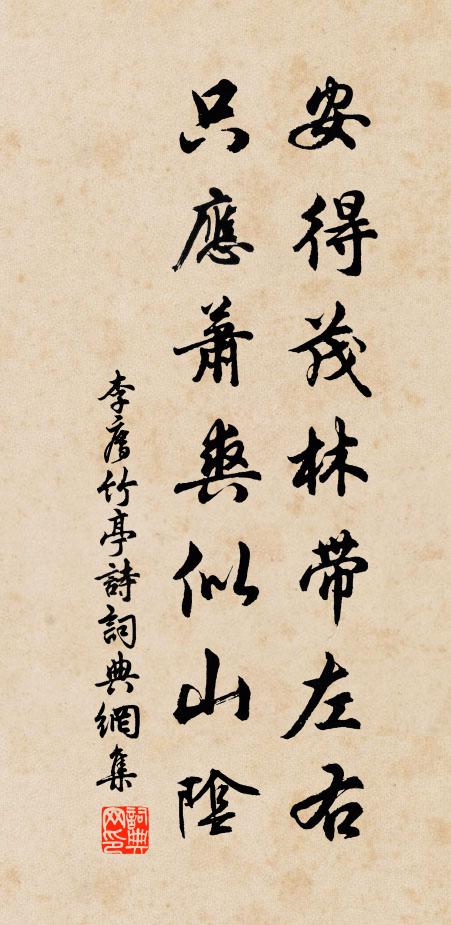 安得茂林帶左右
只應蕭爽似山陰
李廌竹亭詩詞典網集
詞典网印